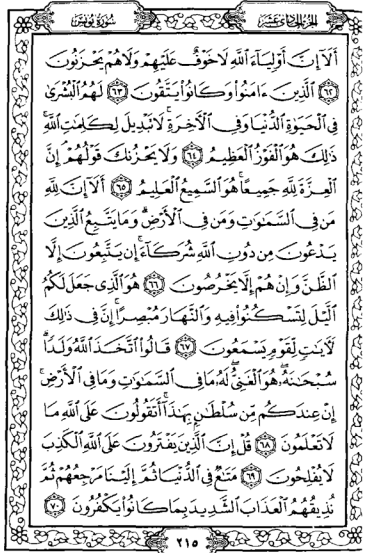 الجزء الحادي عشر
سورة يونس
أَلَآ إِنَّ أَوْلِيَآءَ ٱللَّهِ لَا خَوْفٌ عَلَيْهِمْ وَلَا هُمْ يَحْزَنُونَ
٦٢ ٱلَّذِينَ ءَامَنُوا۟ وَكَانُوا۟ يَتَّقُونَ ٦٣ لَهُمُ ٱلْبُشْرَىٰ
فِى ٱلْحَيَوٰةِ ٱلدُّنْيَا وَفِى ٱلْءَاخِرَةِ ۚ لَا تَبْدِيلَ لِكَلِمَٰتِ ٱللَّهِ ۚ
ذَٰلِكَ هُوَ ٱلْفَوْزُ ٱلْعَظِيمُ ٦٤ وَلَا يَحْزُنكَ قَوْلُهُمْ ۘ إِنَّ
ٱلْعِزَّةَ لِلَّهِ جَمِيعًا ۚ هُوَ ٱلسَّمِيعُ ٱلْعَلِيمُ ٦٥ أَلَآ إِنَّ لِلَّهِ
مَن فِى ٱلسَّمَٰوَٰتِ وَمَن فِى ٱلْأَرْضِ ۗ وَمَا يَتَّبِعُ ٱلَّذِينَ
يَدْعُونَ مِن دُونِ ٱللَّهِ شُرَكَآءَ ۚ إِن يَتَّبِعُونَ إِلَّا
ٱلظَّنَّ وَإِنْ هُمْ إِلَّا يَخْرُصُونَ ٦٦ هُوَ ٱلَّذِى جَعَلَ لَكُمُ
ٱلَّيْلَ لِتَسْكُنُوا۟ فِيهِ وَٱلنَّهَارَ مُبْصِرًا ۚ إِنَّ فِى ذَٰلِكَ
لَءَايَٰتٍ لِّقَوْمٍ يَسْمَعُونَ ٦٧ قَالُوا۟ ٱتَّخَذَ ٱللَّهُ وَلَدًا ۗ
سُبْحَٰنَهُۥ ۖ هُوَ ٱلْغَنِىُّ ۖ لَهُۥ مَا فِى ٱلسَّمَٰوَٰتِ وَمَا فِى ٱلْأَرْضِ ۚ
إِنْ عِندَكُم مِّن سُلْطَٰنٍۭ بِهَٰذَآ ۚ أَتَقُولُونَ عَلَى ٱللَّهِ مَا
لَا تَعْلَمُونَ ٦٨ قُلْ إِنَّ ٱلَّذِينَ يَفْتَرُونَ عَلَى ٱللَّهِ ٱلْكَذِبَ
لَا يُفْلِحُونَ ٦٩ مَتَٰعٌ فِى ٱلدُّنْيَا ثُمَّ إِلَيْنَا مَرْجِعُهُمْ ثُمَّ
نُذِيقُهُمُ ٱلْعَذَابَ ٱلشَّدِيدَ بِمَا كَانُوا۟ يَكْفُرُونَ ٧٠
٢١٥